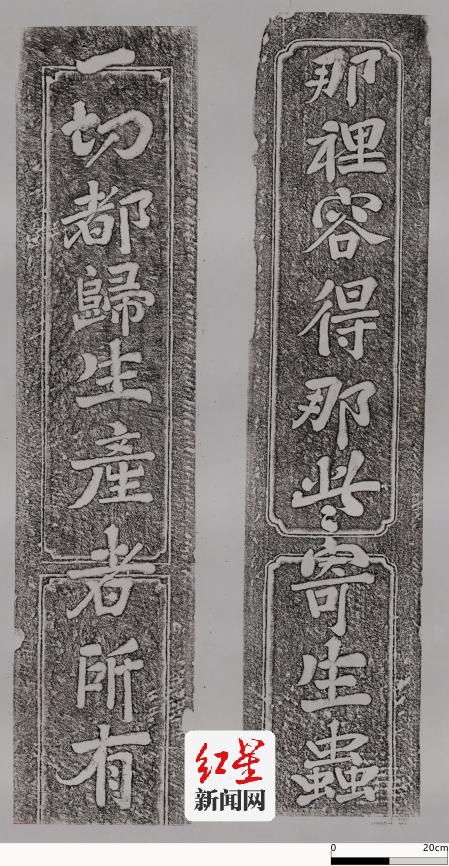 一切都歸生產者所有
那裡容得那些寄生蟲
红星
新闻网
0 20cm